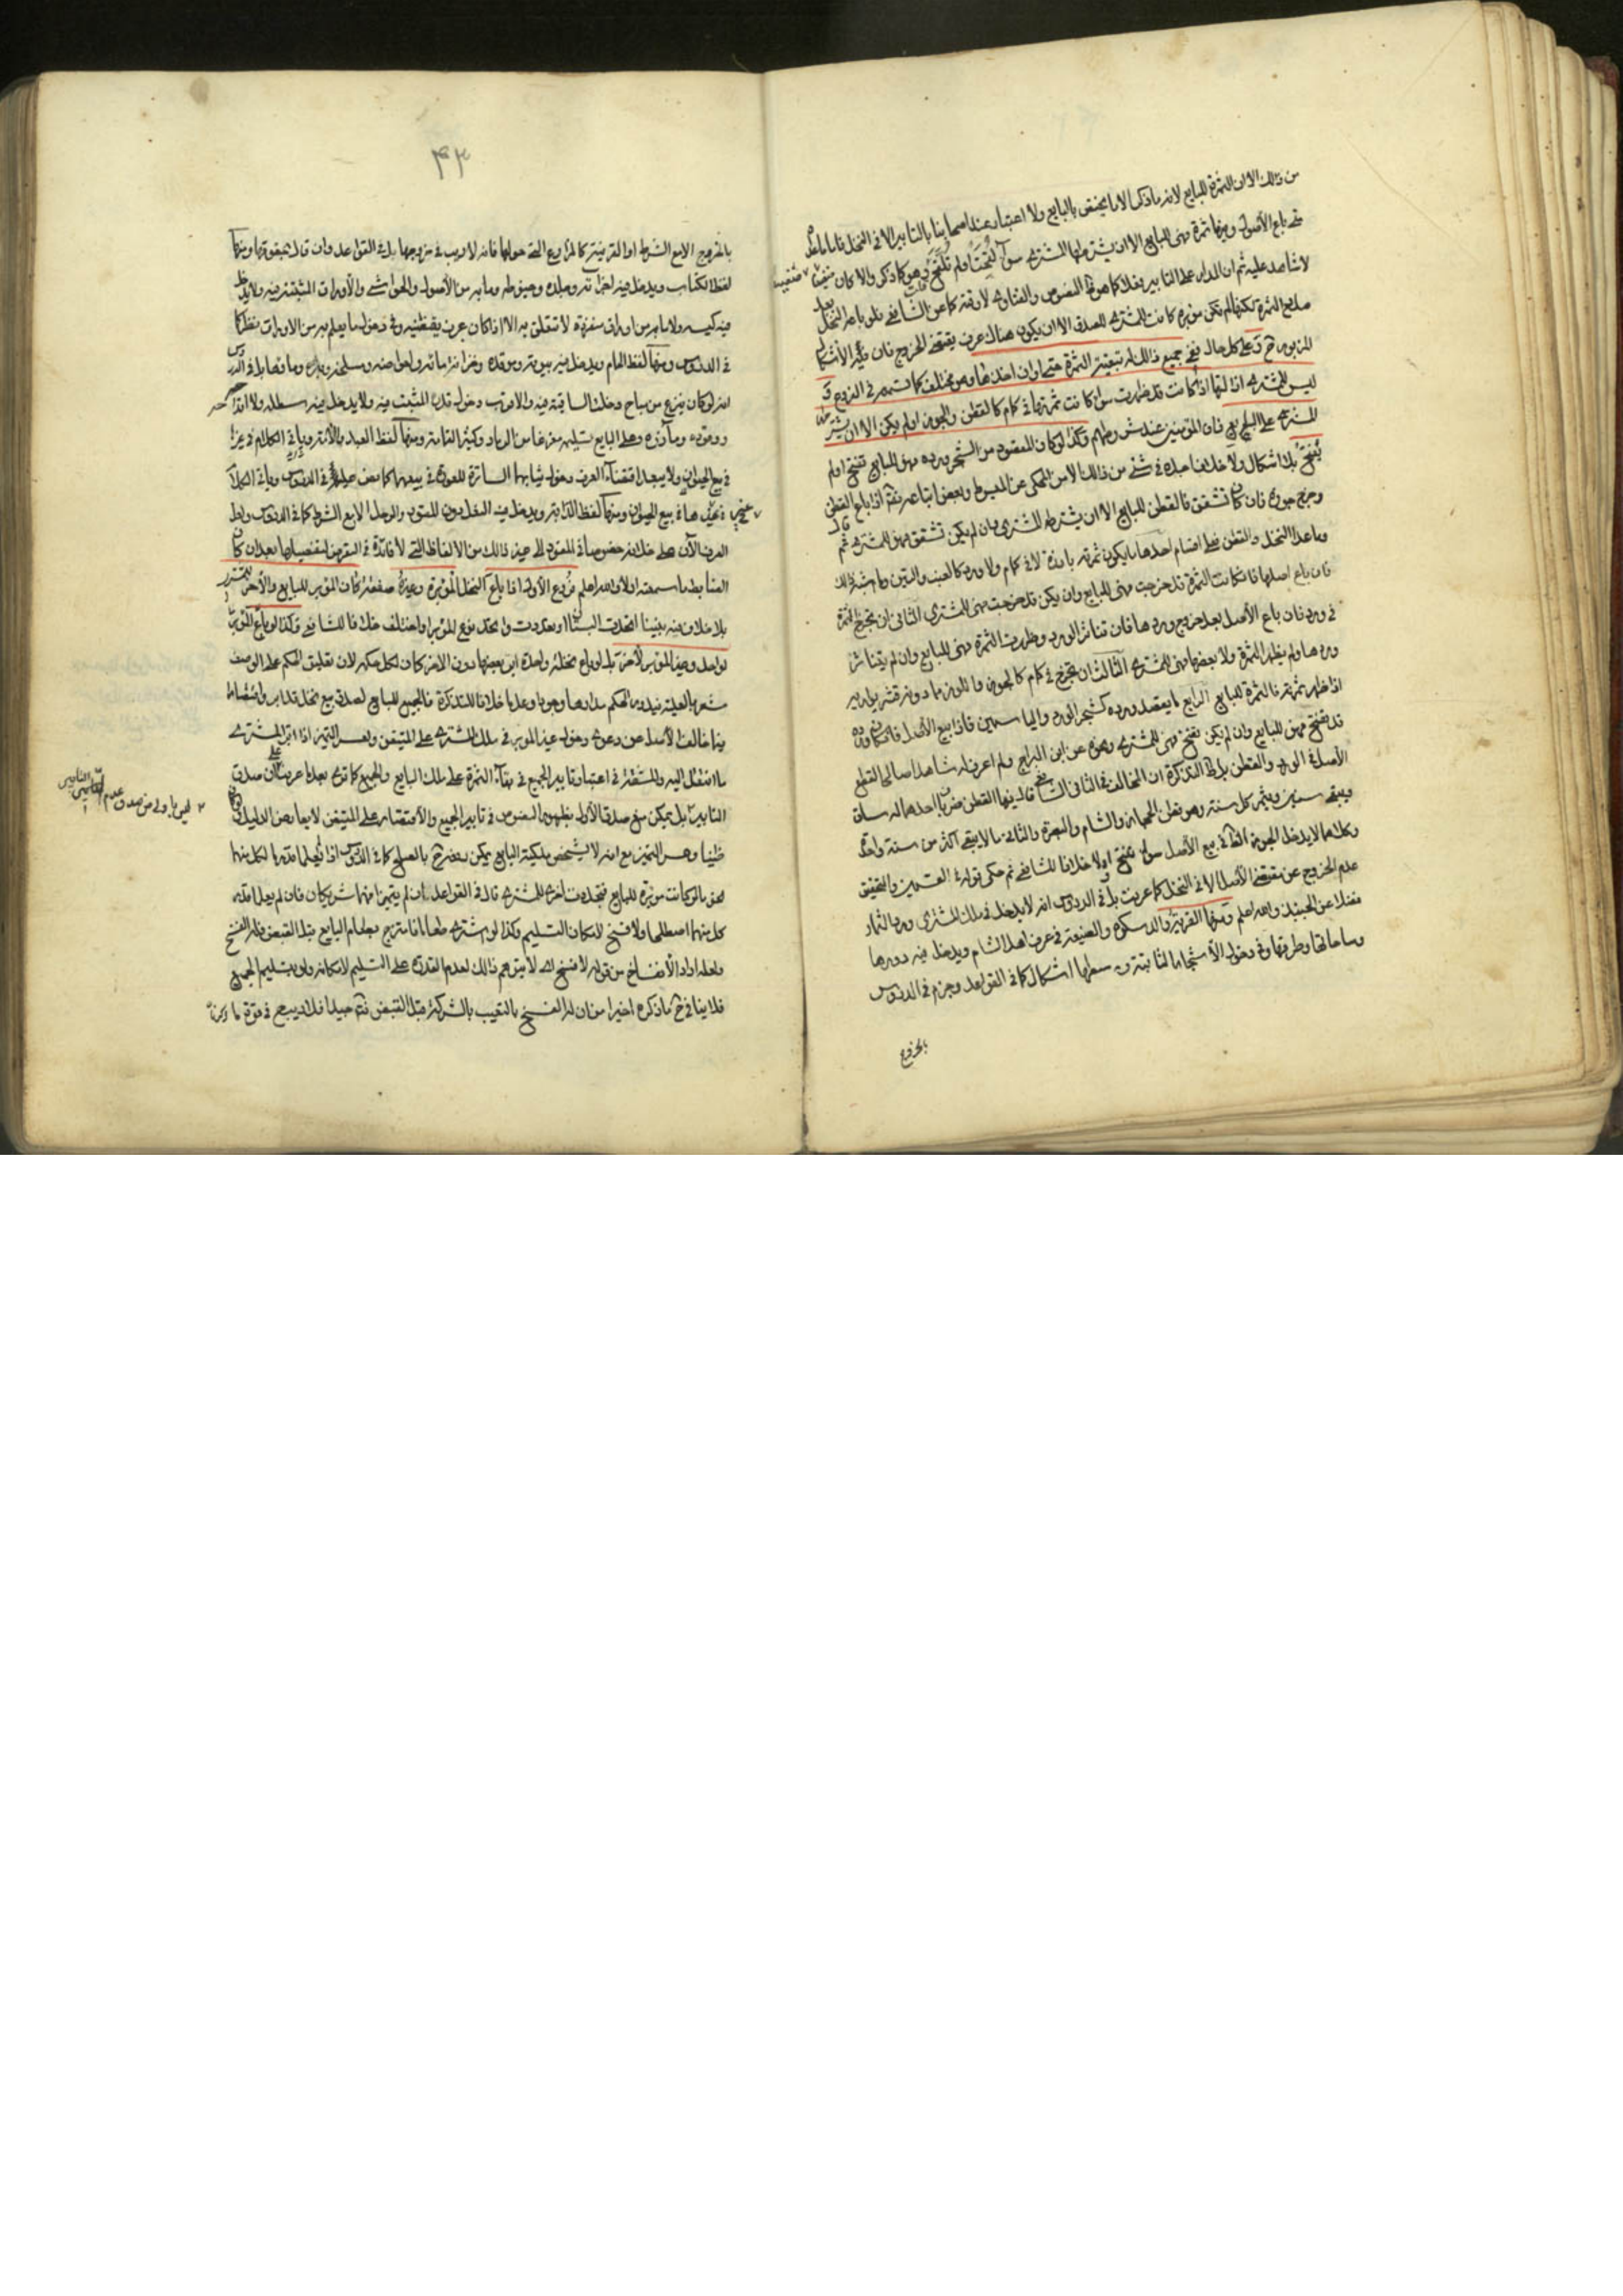 من ذلك الا ان الثمرة للبايع لانه ما ذكر الا ما يختص بالبايع ولا اعتبار عند اصحابنا بالتابير الا في النخل فاما ما عداه
متى باع الأصول وفيها ثمرة فهى للبايع الا ان يشترطها المشترى سواء لقحت او لم تلقح وهو كما ذكر والا كان
لا شاهد عليه ثم ان المدار على التابير كما هو النصوص والفتاوى
الثمرة لكنها لم تكن مؤبرة كانت للمشترى الا ان يكون هناك عرف يقتضى الخروج فان
وعلى كل حال ففى جميع ذلك له تبقية الثمرة حتى اوان اخذها وهو مختلف كما ستسمعه في الفروع و
ليس للمشترى ازالتها اذا كانت قد ظهرت سواء كانت ثمرتها في كمام كالقطن والجوز او لم يكن الا ان يشترطها
المشترى على البايع فان المؤمنين عند شروطهم وكذا لو كان المقصود من الشجر ورده فهو للبايع تفتح او لم
يتفتح بلا اشكال ولا خلاف اجده في شئ من ذلك الا من المحكى عن المبسوط وبعض اتباعه اذا باع القطن
وخرج جوزه فان كان تشقق فالقطن للبايع الا ان يشترطه المشترى وان لم يكن تشقق فهو للمشترى ثم قال
وما عدا النخل والقطن فعلى اقسام احدها ما يكون ثمرته بارزة لا في كمام ولا ورد كالعنب والتين وما اشبه ذلك
فان باع اصلها فان كانت الثمرة قد خرجت فهى للبايع وان يكن قد خرجت فهى للمشترى الثانى ان تخرج الثمرة
في ورد فان باع الأصل بعد خروج وردها فان تناثر الورد وظهرت الثمرة فهى للبايع وان لم يتناثر
وردها ولم يظهر الثمرة ولا بعضها فهى للمشترى الثالث ان تخرج في كمام كالجوز واللوز مما دونه قشر يواريه
اذا ظهر ثمرته فالثمرة للبايع الرابع ما يقصد ورده كشجر الورد والياسمين فاذا بيع الأصل فان كان ورده
قد تفتح فهو للبايع وان لم يكن تفتح فهى للمشترى ونحوه عن ابن البراج ولم اعرف له شاهدا صالحا لقطع
الأصل في الورد والقطن بل في التذكرة ان المخالف في الثانى الشافعى قال فيها القطن ضربان احدهما له ساق
ويبقى سنين ويثمر كل سنة وهو قطن الحجاز والشام والبصرة والثانى ما لا يبقى اكثر من سنة واحدة
وكلاهما لا يدخل الجوزق الظاهر في بيع الأصل سواء تفتح اولا خلافا للشافعى ثم حكى قوله في القسمين والتحقيق
عدم الخروج عن مقتضى الأصل الا في النخل كما عرفت بل في الدروس انه لا يدخل في ملك المشترى ورد الثمار
فضلا عن الجنبذ والله اعلم ومنها القرية والدسكرة والضيعة في عرف اهل الشام ويدخل فيه دورها
وساحاتها وطرقها وفي دخول الأشجار النابتة وسطها اشكال كما في القواعد وجزم في الدروس
بالخروج
۴۳
بالخروج الا مع الشرط او القرينة كالمزارع التى حولها فانه لا ريب في خروجها بل في القواعد وان قال بحقوقها ومنها
لفظ الكتاب ويدخل فيه اجزائه وجلده وخيوطه وما به من الأصول والحواشى والأوراق المثبتة فيه ولا يدخل
فيه كيسه ولا ما به من اوراق منفردة لا تتعلق به الا اذا كان عرف يقتضيه وفي دخول ما يعلم به من الاوراق نظر كما
في الدروس ومنها لفظ الحمام ويدخل فيه بيوته وموقده وخزانة مائه واحواضه ومسلخه وبئره وما قصابل في الدروس
انه لو كان ينزع من مباح دخلت الساقية فيه والاقرب دخول قدر المثبت فيه ولا يدخل فيه سطله ولا
ووقوده ومآزره وعلى البايع تسليمه مفرغا من الرماد وكثير القمامة ومنها لفظ العبد والأمة وياتى الكلام فيهما
في بيع الحيوان ولا يبعد اقتضاء العرف دخول ثيابهما الساترة للعورة في بيعهما كما عن جماعة في الدروس وياتى الكلام
في بيع الحيوان ومنها لفظ الدابة ويدخل فيه النعل دون المقود والرحل الا مع الشرط كما في الدروس ولعل
العرف الآن على خلافه خصوصا في المقود الى غير ذلك من الالفاظ التى لا فائدة في التعرض لتفصيلها بعد ان كان
الضابط ما سمعته اولا والله اعلم فروع الأول اذا باع النخل المؤبرة وغيره صفقة كان المؤبر للبايع والأخر للمشترى
بلا خلاف فيه بيننا اتحدت البستان او تعددت وان اتحد نوع المؤبر او اختلف خلافا للشافعى وكذا لو باع المؤبر
لواحد وغير المؤبر لآخر بل لو باع نخلة واحدة ابر بعضها دون الآخر كان لكل حكمه لان تعليق الحكم على الوصف
مشعر بالعلية فيدور الحكم مدارها وجودا وعدما خلافا للتذكرة فالجميع للبايع لصدق بيع نخل قد ابر واقتصارا
فيما خالف الأصل من دعوى دخول غير المؤبر في ملك المشترى على المتيقن ولعسر التميز اذا ابر المشترى
ما انتقل اليه والمشقة في اعتبار تابير الجميع في بقاء الثمرة على ملك البايع والجميع كما ترى بعد ما عرفت ان صدق
التابير بل يمكن منع صدق الأول بظهور النصوص في تابير الجميع والأقتصار على المتيقن لا يعارض الدليل
ظنيا وعسر التميز مع انه لا يشخص ملكية البايع يمكن دفعه بالصلح كما في الدروس اذا لم يعلما قدر ما لكل منهما
نعم لو كانت مؤبرة للبايع فتجددت اخرى للمشترى قال في القواعد ان لم يتميزا فهما شريكان فان لم يعلما قدر
كل منهما اصطلحا ولا فسخ لامكان التسليم وكذا لو اشترى طعاما فامتزج بطعام البايع قبل القبض فله الفسخ
ولعله اراد الأنفساخ من قوله لا فسخ اى لا يتوهم ذلك لعدم القدرة على التسليم لامكانه ولو بتسليم الجميع
فلا ينافى ح ما ذكره اخيرا من ان له الفسخ بالتعيب بالشركة قبل القبض فتامل جيدا